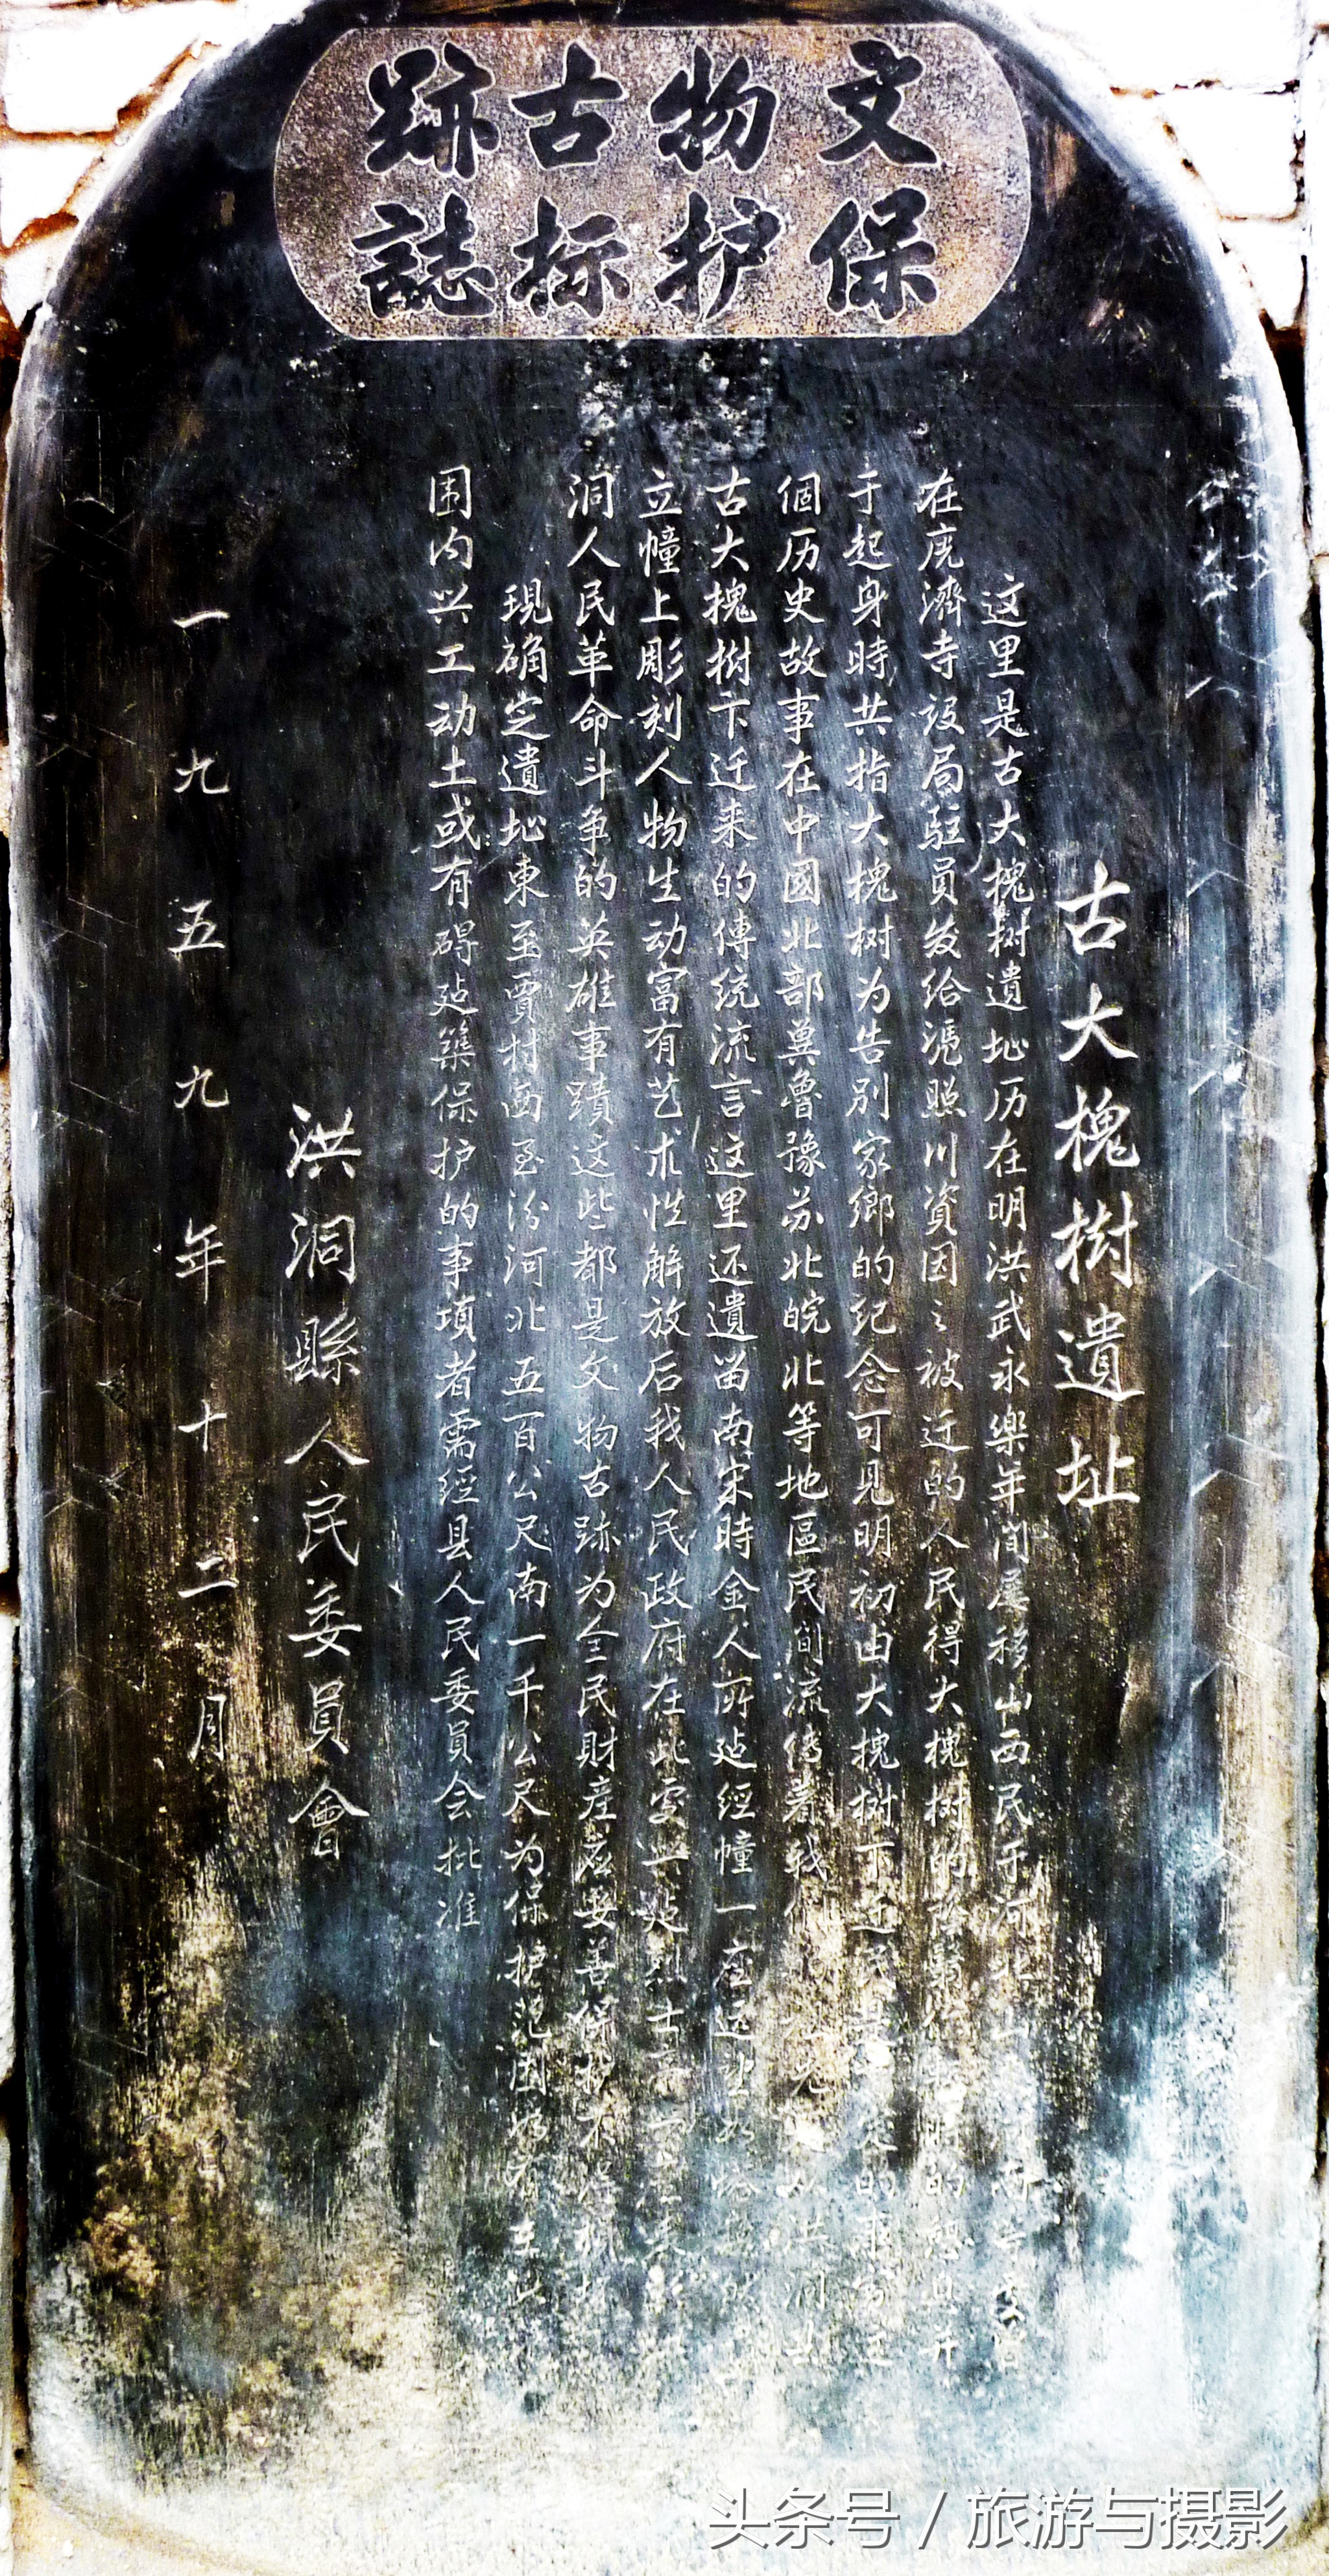 文物古跡
保护标誌
古大槐樹遺址
这里是古大槐树遺址历在明洪武永樂年间屡移山西民于河北
在廣濟寺設局駐員发给凴照川資因之被迁的人民得大槐树的
于起身時共指大槐树为告别家鄉的纪念可見明初由大槐树下迁民是
個历史故事在中國北部冀魯豫苏北皖北等地區民间流传着我
古大槐樹下迁来的傳统流言这里还遺留南宋時金人所建经幢一座
立幢上彫刻人物生动富有艺术性解放后我人民政府在此处兴建烈士
洞人民革命斗争的英雄事蹟这些都是文物古跡为全民財産应妥善保护
現确定遺址東至賈村西至汾河北五百公尺南一千公尺为保护范围
围内兴工动土或有碍建築保护的事項者需经县人民委員会批准
洪洞縣人民委員會
一九五九年十二月
头条号 / 旅游与摄影